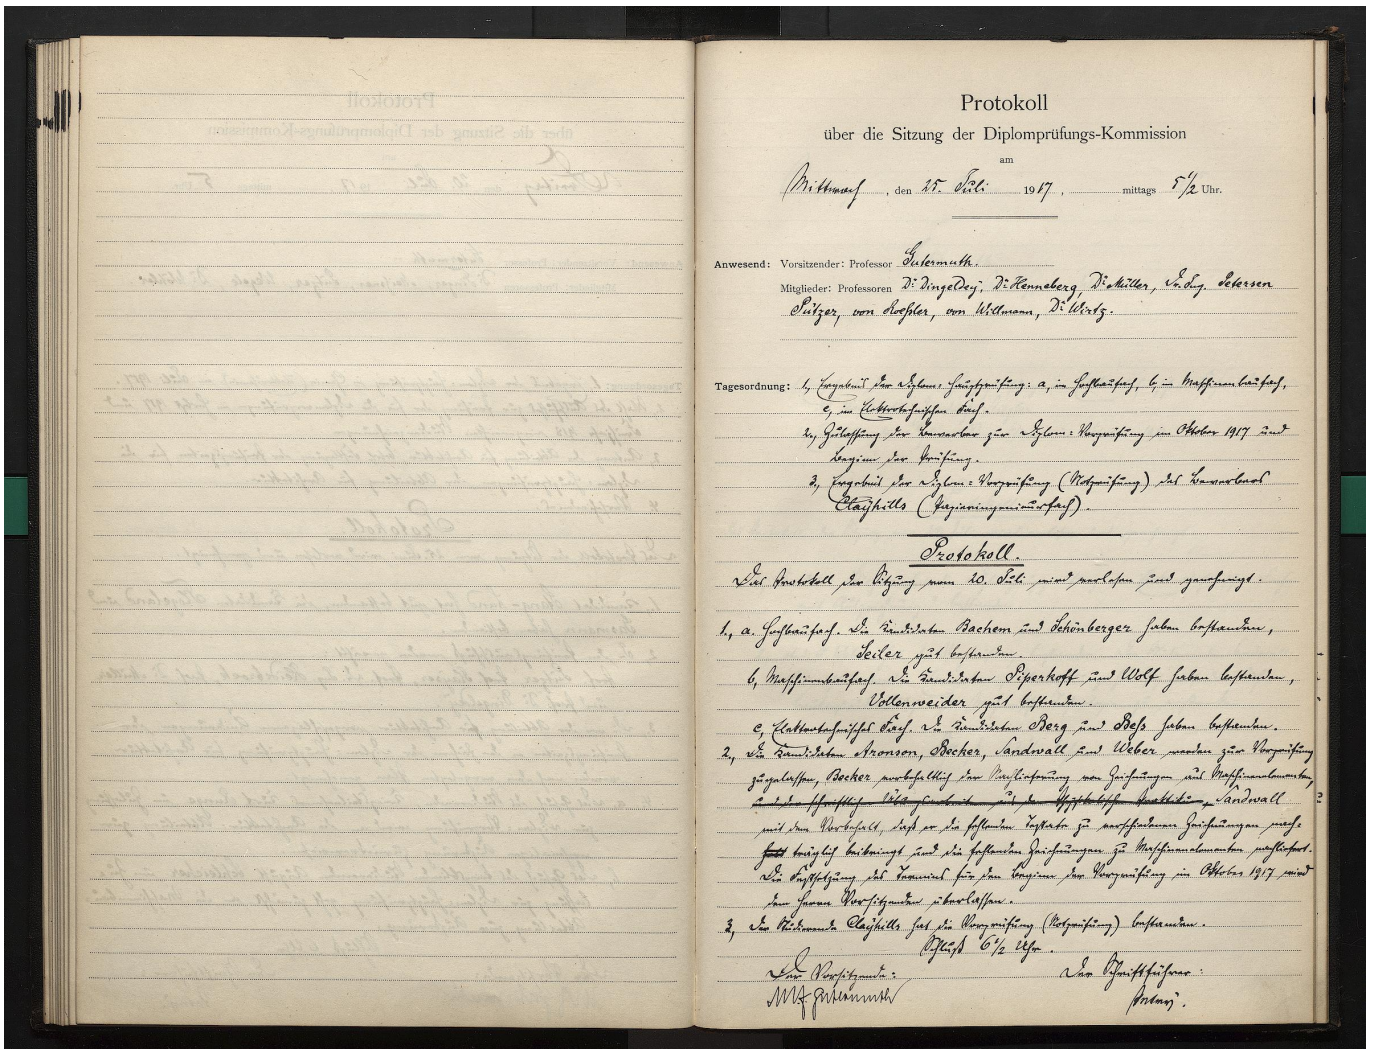 Protokoll
über die Sitzung der Diplomprüfungs-Kommission
am
Mittwoch, den 25. Juli 1917, mittags 5 1/2 Uhr.
Anwesend: Vorsitzender: Professor Gutermuth.
Mitglieder: Professoren Dr. Dingeldey, Dr. Henneberg, Dr. Müller, Dr. Ing. Petersen
Pützer, von Roeßler, von Willmann, Dr. Wirtz.
Tagesordnung: 1, Ergebnis der Diplom-Hauptprüfung: a, im Hochbaufach, b, im Maschinenbaufach,
c, im Elektrotechnischen Fach.
2., Zulassung der Bewerber zur Diplom-Vorprüfung im Oktober 1917 und
Beginn der Prüfung.
3., Ergebnis der Diplom-Vorprüfung (Notprüfung) des Bewerbers
Clayhills (Papieringenieurfach).
Protokoll.
Das Protokoll der Sitzung vom 20. Juli wird verlesen und genehmigt.
1., a. Hochbaufach. Die Kandidaten Bachem und Schönberger haben bestanden,
Seiler gut bestanden.
b, Maschinenbaufach. Die Kandidaten Piperkoff und Wolf haben bestanden,
Vollenweider gut bestanden.
c, Elektrotechnisches Fach. Die Kandidaten Berg und Beß haben bestanden.
2., Die Kandidaten Aronson, Becker, Sandwall und Weber werden zur Vorprüfung
zugelassen, Becker vorbehaltlich der Nachlieferung von Zeichnungen aus Maschinenelementen,
und der schriftlichen aus dem Physikalischen Praktikum, Sandwall
mit dem Vorbehalt, daß er die fehlenden Testate zu verschiedenen Zeichnungen nach-
träglich beibringt und die fehlenden Zeichnungen zu Maschinenelementen nachliefert.
Die Festsetzung des Termins für den Beginn der Vorprüfung im Oktober 1917 wird
dem Herrn Vorsitzenden überlassen.
3, Der Studierende Clayhills hat die Vorprüfung (Notprüfung) bestanden.
Schluß 6 1/2 Uhr.
Der Vorsitzende: Der Schriftführer:
Gutermuth